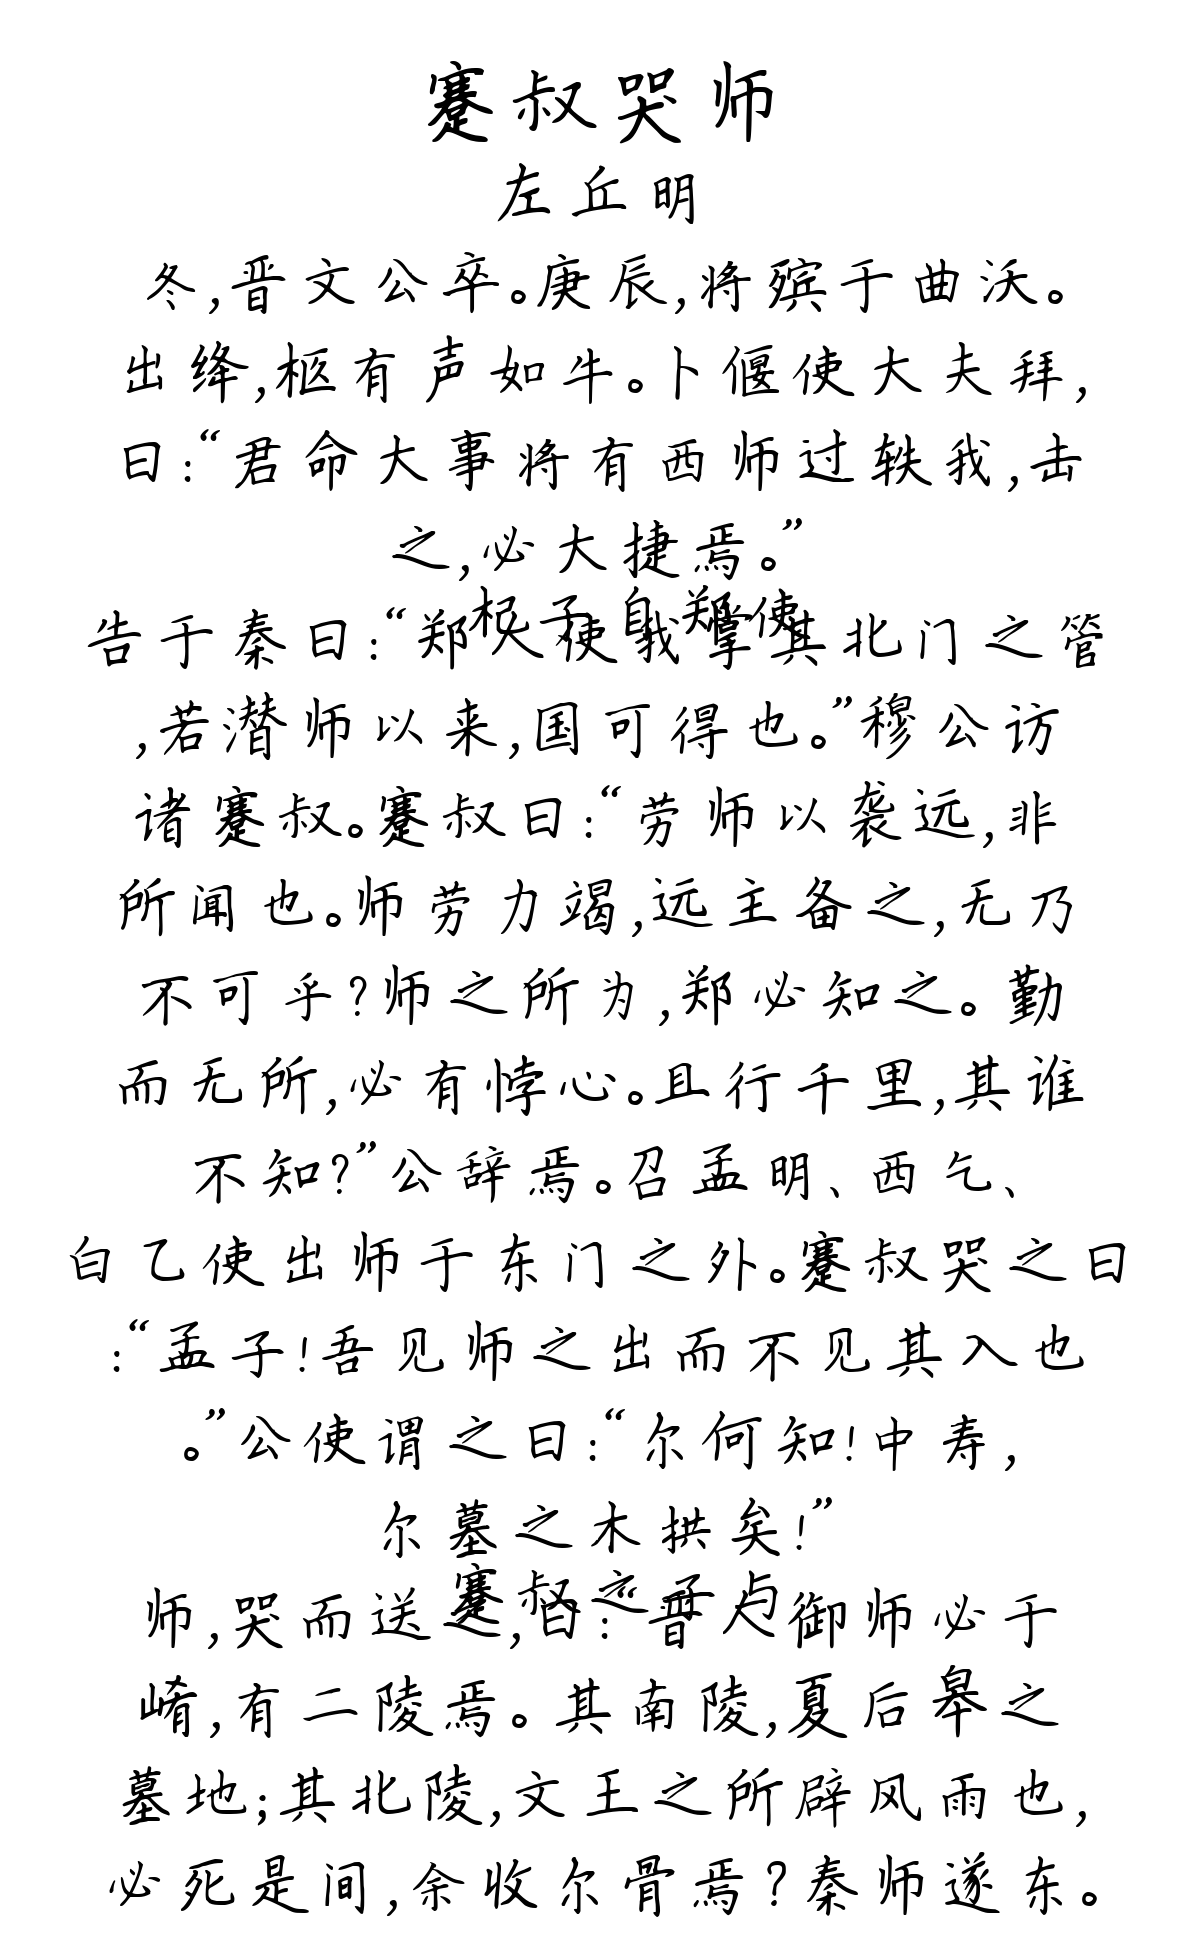 蹇叔哭师
左丘明
冬,晋文公卒。庚辰,将殡于曲沃。
出绛,柩有声如牛。卜偃使大夫拜,
曰:“君命大事将有西师过轶我,击
之,必大捷焉。”
杞子自郑使
告于秦曰:“郑人使我掌其北门之管
,若潜师以来,国可得也。”穆公访
诸蹇叔。蹇叔曰:“劳师以袭远,非
所闻也。师劳力竭,远主备之,无乃
不可乎?师之所为,郑必知之。勤
而无所,必有悖心。且行千里,其谁
不知?”公辞焉。召孟明、西乞、
白乙使出师于东门之外。蹇叔哭之曰
:“孟子!吾见师之出而不见其入也
。”公使谓之曰:“尔何知!中寿,
尔墓之木拱矣!”
蹇叔之子与
师,哭而送之,曰:“晋人御师必于
崤,有二陵焉。其南陵,夏后皋之
墓地;其北陵,文王之所辟风雨也,
必死是间,余收尔骨焉?秦师遂东。